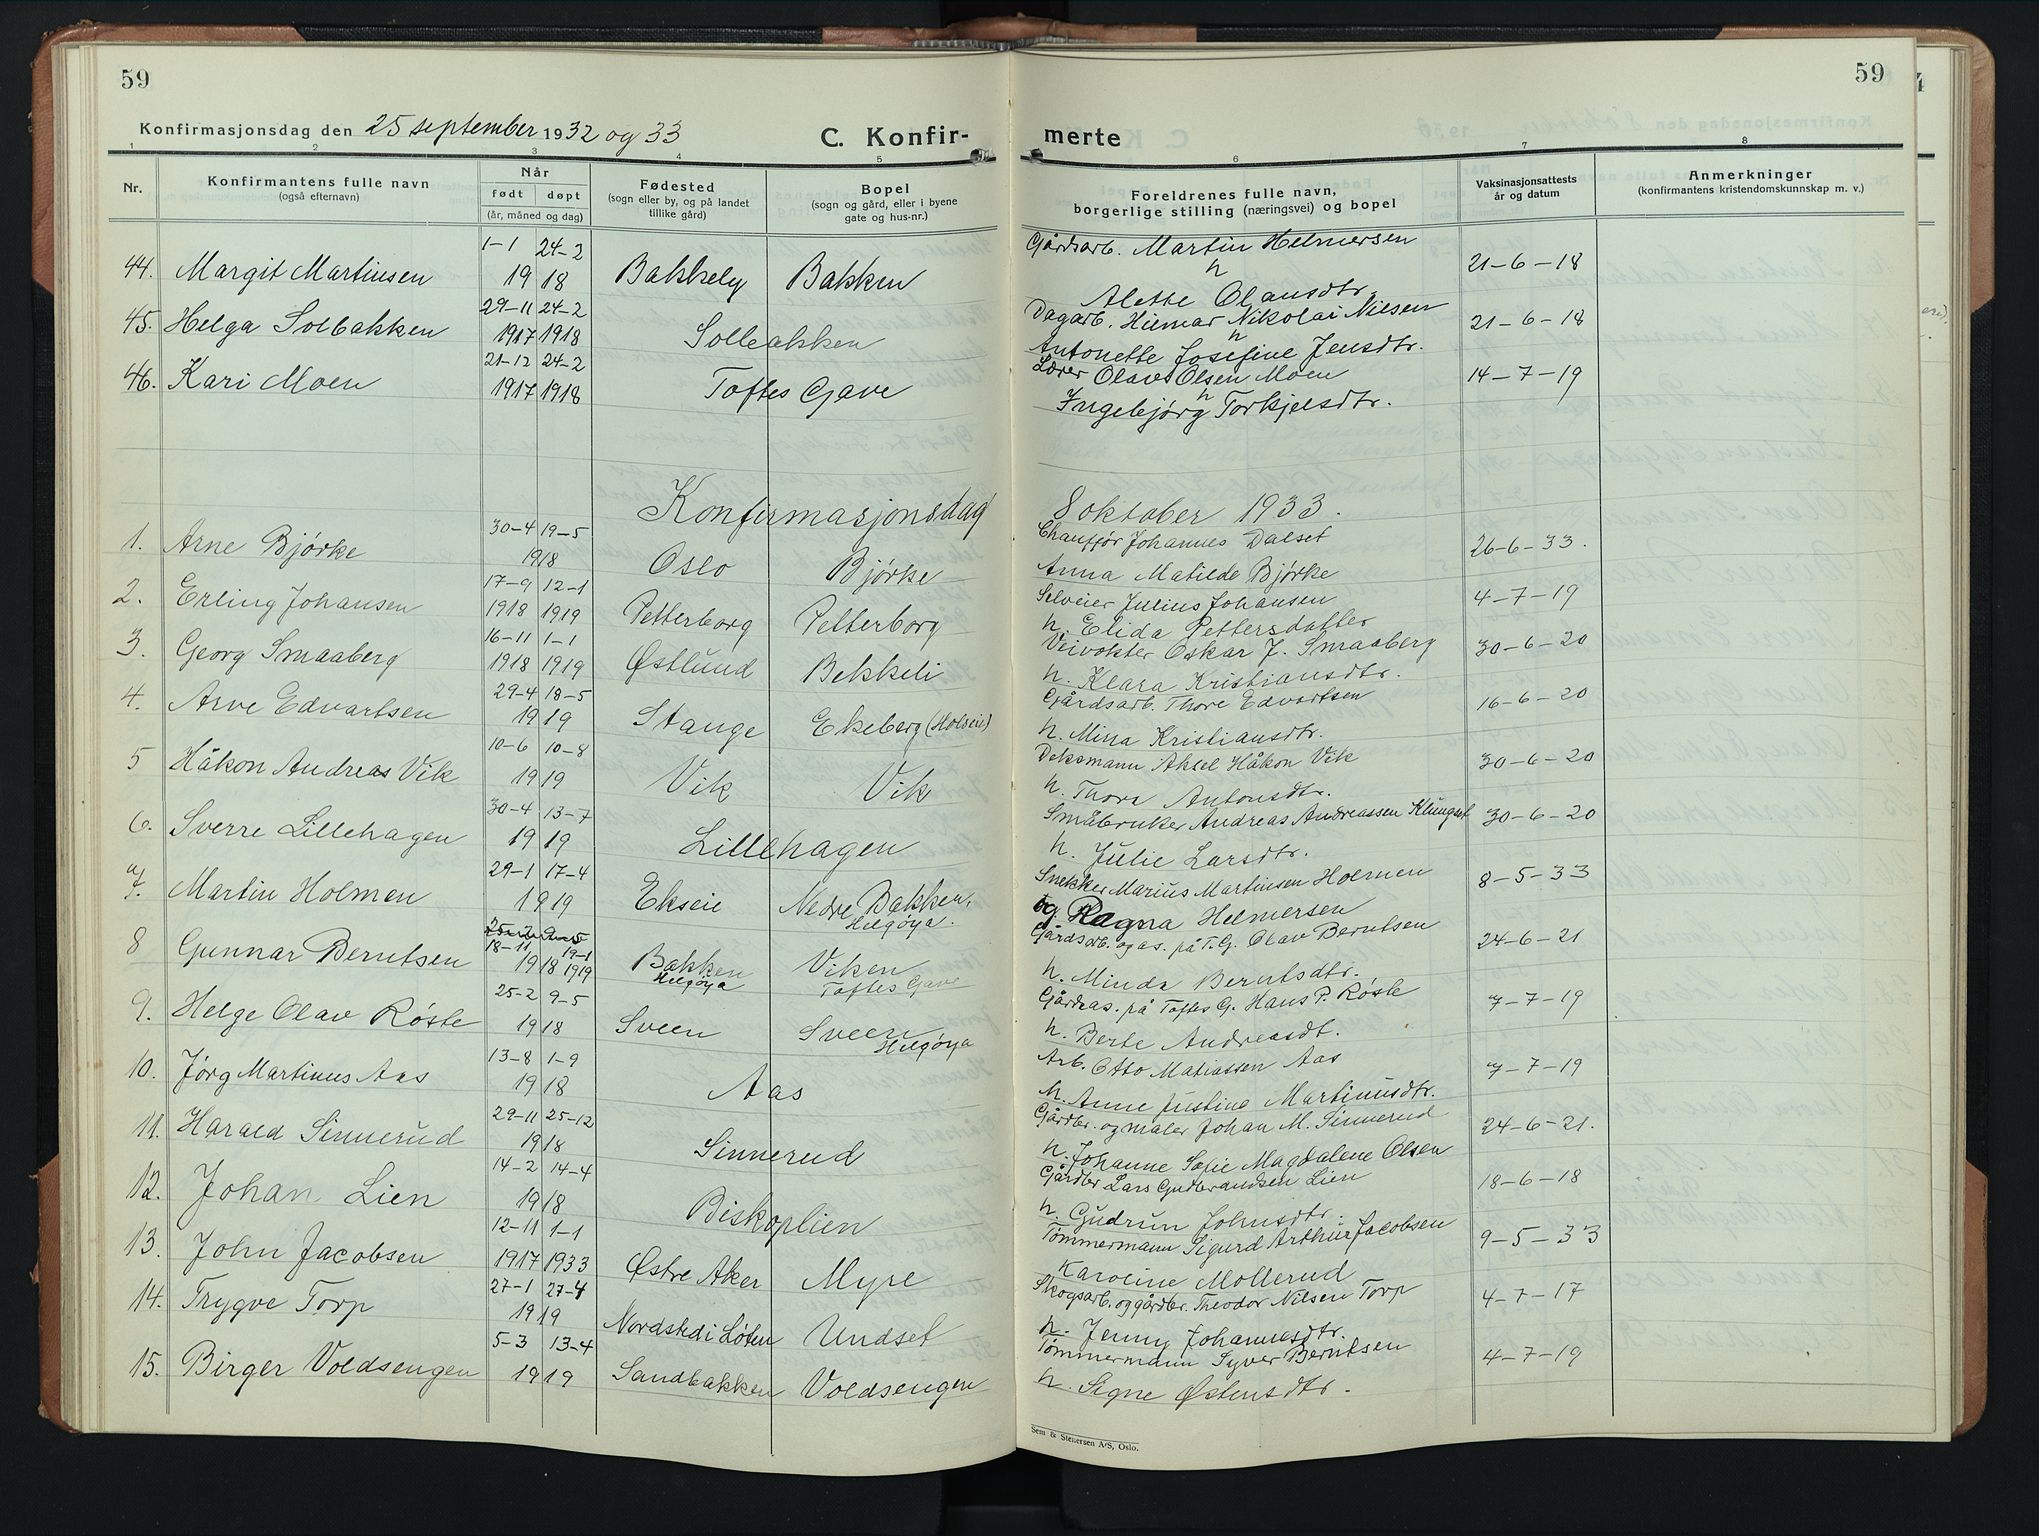 59
Konfirmasjonsdag den 25 september 1932 og 33
C. Konfir-
1 2 3 4 5
Nr.
Konfirmantens fulle navn
(også efternavn)
Når
født døpt
(år, måned og dag)
Fødested
(sogn eller by, og på landet
tillike gård)
Bopel
(sogn og gård, eller i byene
gate og hus-nr.)
1-1 24-2
44. Margit Martinsen 19 18 Bakkely Bakken
29-11 24-2
45. Helga Solbakken 1917 1918 Solbakken
21-12 24-2
46. Kari Moen 1917 1918 Toftes Gave
Konfirmasjonsdag
30-4 19-5
1. Arne Bjørke 1918 Oslo Bjørke
17-9 12-1
2. Erling Johansen 1918 1919 Petterborg Petterborg
16-11 1-1
3. Georg Smaaberg 1918 1919 Østlund Bekkeli
29-4 18-5
4. Arve Edvartsen 19 19 Stange Ekeberg (Holseie)
10-6 10-8
5 Håkon Andreas Vik 19 19 Vik Vik
30-4 13-7
6. Sverre Lillehagen 19 19 Lillehagen
29-1 17-4
7. Martin Holmen 1919 Ekseie Nedre Bakken,
Helgøya.
18-11 19-1
8 Gunnar Berntsen 1918 1919 Bakken Viken
Helgøya Toftes Gave
25-2 9-5
9. Helge Olav Røste 1918 Sveen Sveen
Helgøya
13-8 1-9
10. Jørg Martinus Aas 1918 Aas
29-11 25-12
11. Harald Sinnerud 1918 Sinnerud
14-2 14-4
12. Johan Lien 1918 Biskoplien
12-11 1-1
13. John Jacobsen 1917 1933 Østre Aker Myre
27-1 27-4
14. Trygve Torp 1919 Nordsted i Løten Undset
5-3 13-4
15. Birger Voldsengen 1919 Sandbakken Voldsengen
59
merte
6 7 8
Foreldrenes fulle navn,
borgerlige stilling (næringsvei) og bopel
Vaksinasjonsattests
år og datum
Anmerkninger
(konfirmantens kristendomskunnskap m. v.)
Gårdsarb. Martin Helmersen
h 21-6-18
Alette Olausdtr.
Dagarb. Hilmar Nikolai Nilsen
h 21-6-18
Antonette Josefine Jensdtr.
Lærer Olav Olsen Moen 14-7-19
h
Ingebjørg Torkjelsdtr.
8 oktober 1933.
Chauffør Johannes Dalset 26-6-33.
Anna Matilde Bjørke
Selveier Julius Johansen 4-7-19
h. Elida Pettersdatter
Veivokter Oskar J. Smaaberg 30-6-20
h. Klara Kristiansdtr.
Gårdsarb. Thore Edvartsen 16-6-20
h. Mina Kristiansdtr.
Deksmann Aksel Håkon Vik 30-6-20
h. Thora Antonsdtr.
Småbruker Andreas Andreassen 30-6-20
h. Julie Larsdtr.
Snekker Marius Martinsen Holmen 8-5-33
og Ragna Helmersen
Gårdsarb. og as. på T. G. Olav Berntsen 24-6-21
h. Minda Berntsdtr.
Gårdsas. på Toftes G. Hans P. Røste 7-7-19
h. Berte Andreasdt.
Arb. Otto Matiassen Aas 7-7-19
h. Anne Justine Martinusdtr.
Gårdbr. og maler Johan M. Sinnerud 24-6-21.
h. Johanne Sofie Magdalene Olsen
Gårdbr Lars Gudbrandsen Lien 18-6-18
h. Gudrun Johnsdtr.
Tømmermann Sigurd Arthur Jacobsen 9-5-33
Karoline Mollerud
Skogsarb. og gårdbr. Theodor Nilsen Torp 4-7-17
h. Jenny Johannesdtr.
Tømmermann Syver Berntsen 4-7-19
h. Signe Østensdtr.
Sem & Stenersen A/S, Oslo.